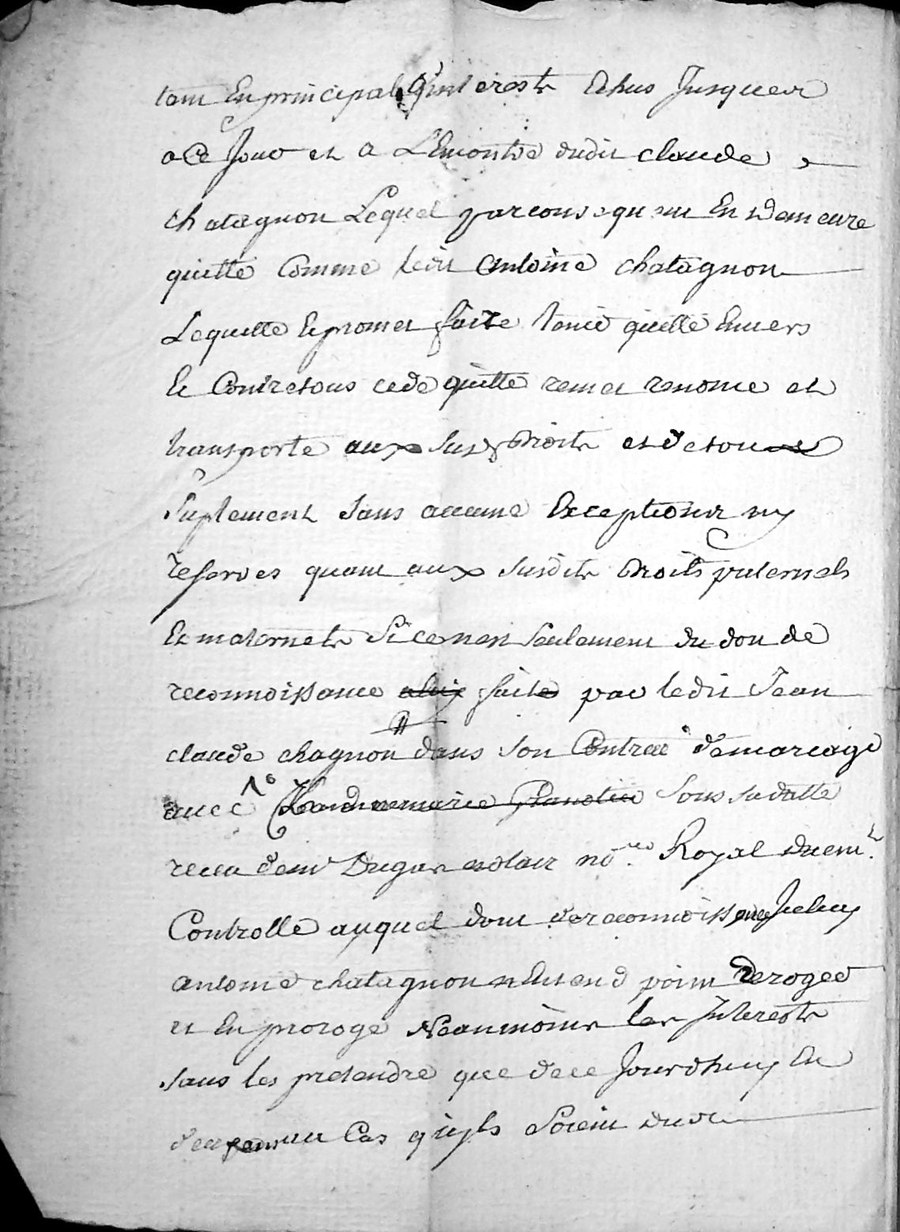 tant En principal qu'interests Echus Jusques
a Ce Jour et a L'Encontre dudit claude
chatagnon Lequel par consequent En demeure
quitte Comme ledit antoine chatagnon
Laquelle Il promet faire tenir quitte Envers
Et Contre tous cede quitte remet renonce et
transporte aux susd droits et de tous
suplement sans aucune Exceptions ny
reserves quant aux susdits Droits paternels
Et maternels Si ce n'est seulement du don de
reconnoissance faite par ledit Jean
claude chagnon dans son Contrac de mariage
avec sous sa datte
receu de me no.re Royal duem.t
Controlle auquel don de reconnoissance Iceluy
antoine chatagnon n'Entend point deroger
et En proroge Neanmoins les Interests
sans les pretendre que de ce Jourdhuy En
cas qu'ils soient dus